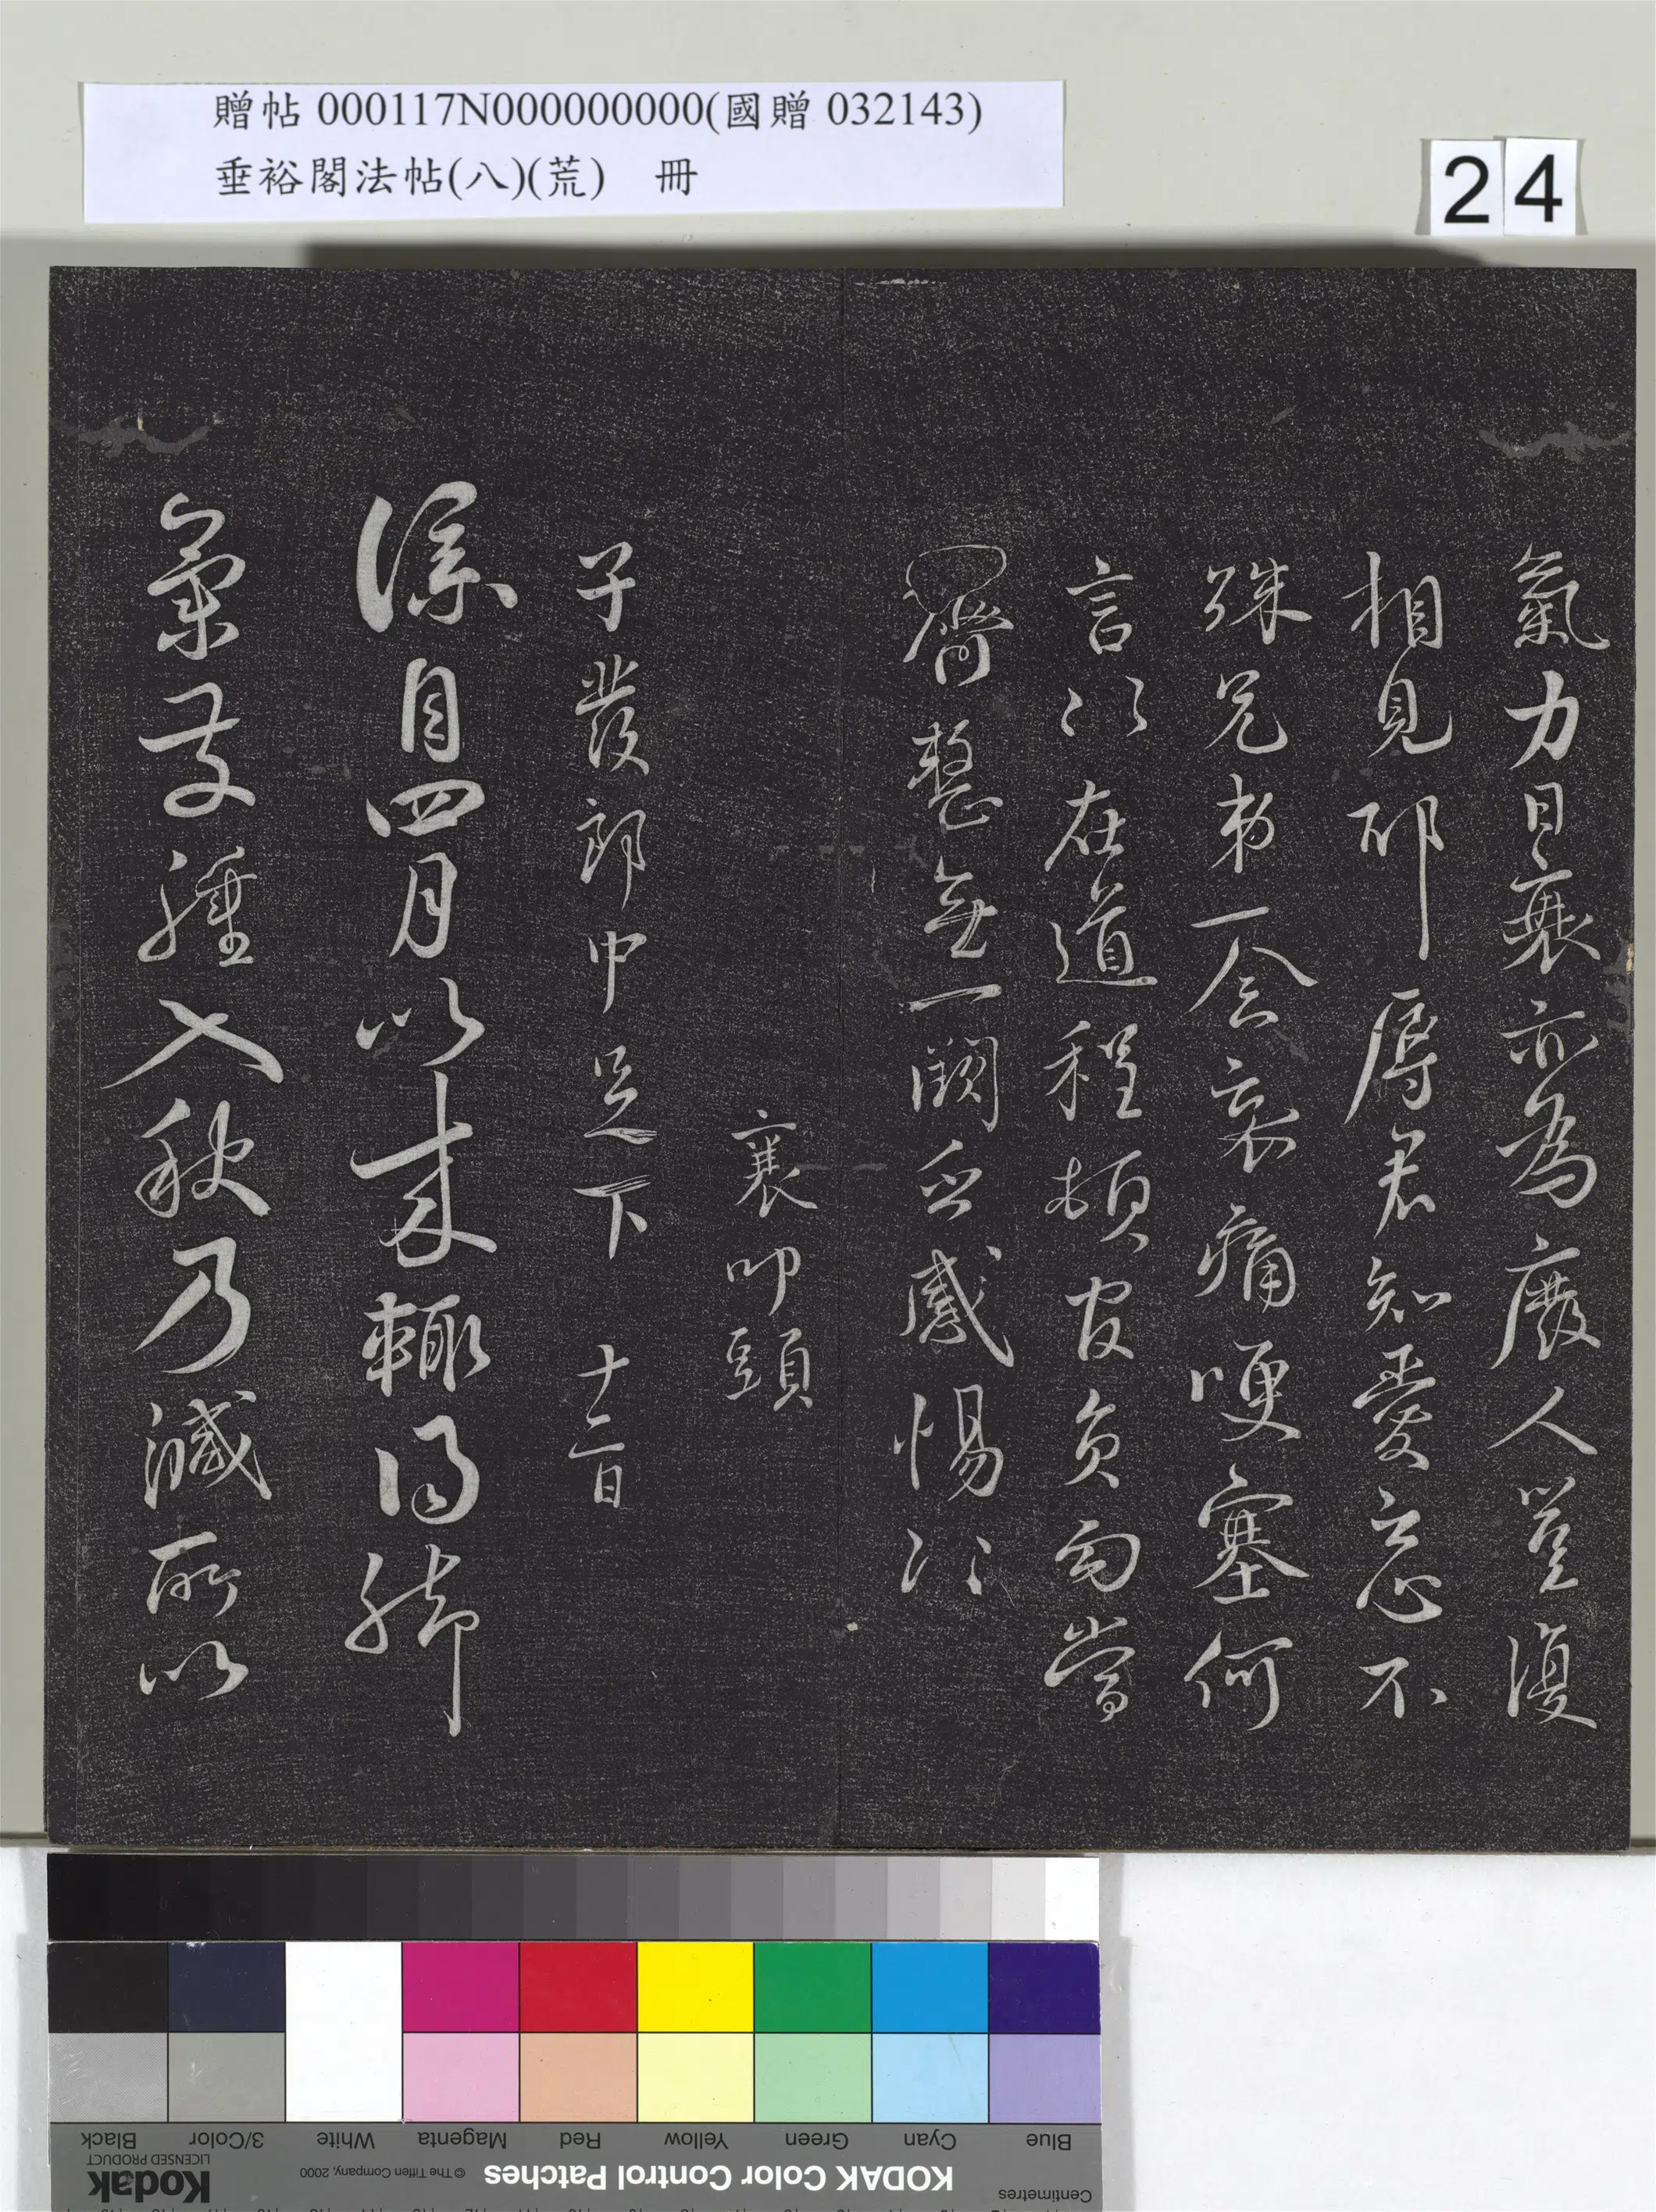 贈帖 000117N000000000(國贈 032143)
垂裕閣法帖(八)(荒) 冊
24
氣力日衰亦為廢人豈復
相見耶辱君知愛忘不
殊兄弟一念哀痛哽塞何
言以在道程頓皆負勾當
齊整無一闕乏感惕
襄叩頭
子發郎中足下 十二日
襄自四月以來輒得腳
氣發腫入秋乃減所以
Black
3/Color
White
Magenta
Red
Yellow
Green
Cyan
Blue
Kodak
LICENSED PRODUCT
© The Tiffen Company, 2000
KODAK Color Control Patches
Centimetres